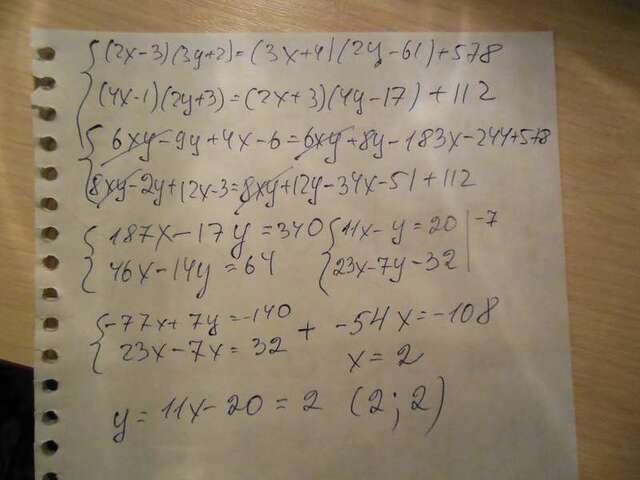 {(2x-3)(3y+2)=(3x+4)(2y-61)+578
{(4x-1)(2y+3)=(2x+3)(4y-17)+112
{6xy-9y+4x-6=6xy+8y-183x-244+578
{8xy-2y+12x-3=8xy+12y-34x-51+112
{187x-17y=340 {11x-y=20|-7
{46x-14y=64 {23x-7y-32|
{-77x+7y=-140 + -54x=-108
{23x-7x=32 x=2
y=11x-20=2 (2;2)